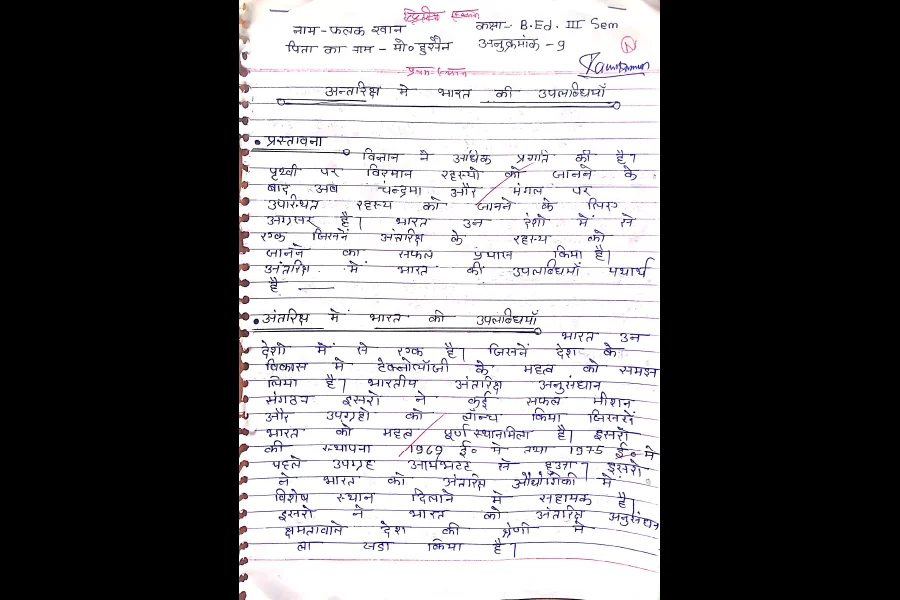 नाम-फलक खान कक्षा- B.Ed. III Sem
पिता का नाम - मो० हुसैन अनुक्रमांक - 9
N
अन्तरिक्ष मे भारत की उपलब्धियाँ
• प्रस्तावना
विज्ञान ने अधिक प्रगति की है।
पृथ्वी पर विद्यमान रहस्यो को जानने के
बाद अब चन्द्रमा और मंगल पर
उपस्थित रहस्य को जानने के लिए
अग्रसर है। भारत उन देशो में से
एक जिसनें अंतरिक्ष के रहस्य को
जानने का सफल प्रयास किया है।
अंतरिक्ष में भारत की उपलब्धियाँ यथार्थ
है —
• अंतरिक्ष में भारत की उपलब्धियाँ
भारत उन
देशो में से एक है। जिसनें देश के
विकास मे टेक्नोलॉजी के महत्व को समझ
लिया है। भारतीय अंतरिक्ष अनुसंधान
संगठन इसरो ने कई सफल मीशन
और उपग्रहो को लॉन्च किया जिससें
भारत को महत्व पूर्ण स्थान मिला है। इसरो
की स्थापना 1969 ई० मे तथा 1975 ई० मे
पहले उपग्रह आर्यभटट से हुआ। इसरो
ने भारत को अंतरिक्ष औद्योगिकी में
विशेष स्थान दिलाने मे सहायक है।
इसरो ने भारत को अंतरिक्ष अनुसंधान
क्षमतावाले देश की श्रेणी मे
ला खडा किया है।